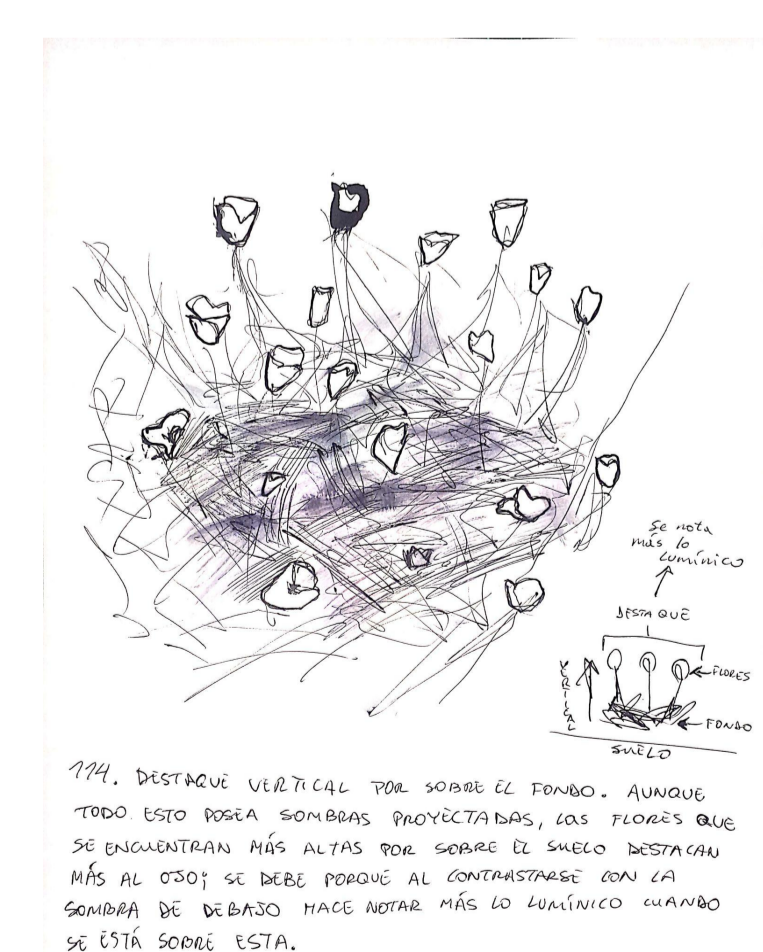 Se nota
más lo
lumínico
DESTAQUE
VERTICAL
FLORES
FONDO
SUELO
114. DESTAQUE VERTICAL POR SOBRE EL FONDO. AUNQUE
TODO ESTO POSEA SOMBRAS PROYECTADAS, LAS FLORES QUE
SE ENCUENTRAN MÁS ALTAS POR SOBRE EL SUELO DESTACAN
MÁS AL OJO; SE DEBE PORQUE AL CONTRASTARSE CON LA
SOMBRA DE DEBAJO HACE NOTAR MÁS LO LUMÍNICO CUANDO
SE ESTÁ SOBRE ESTA.